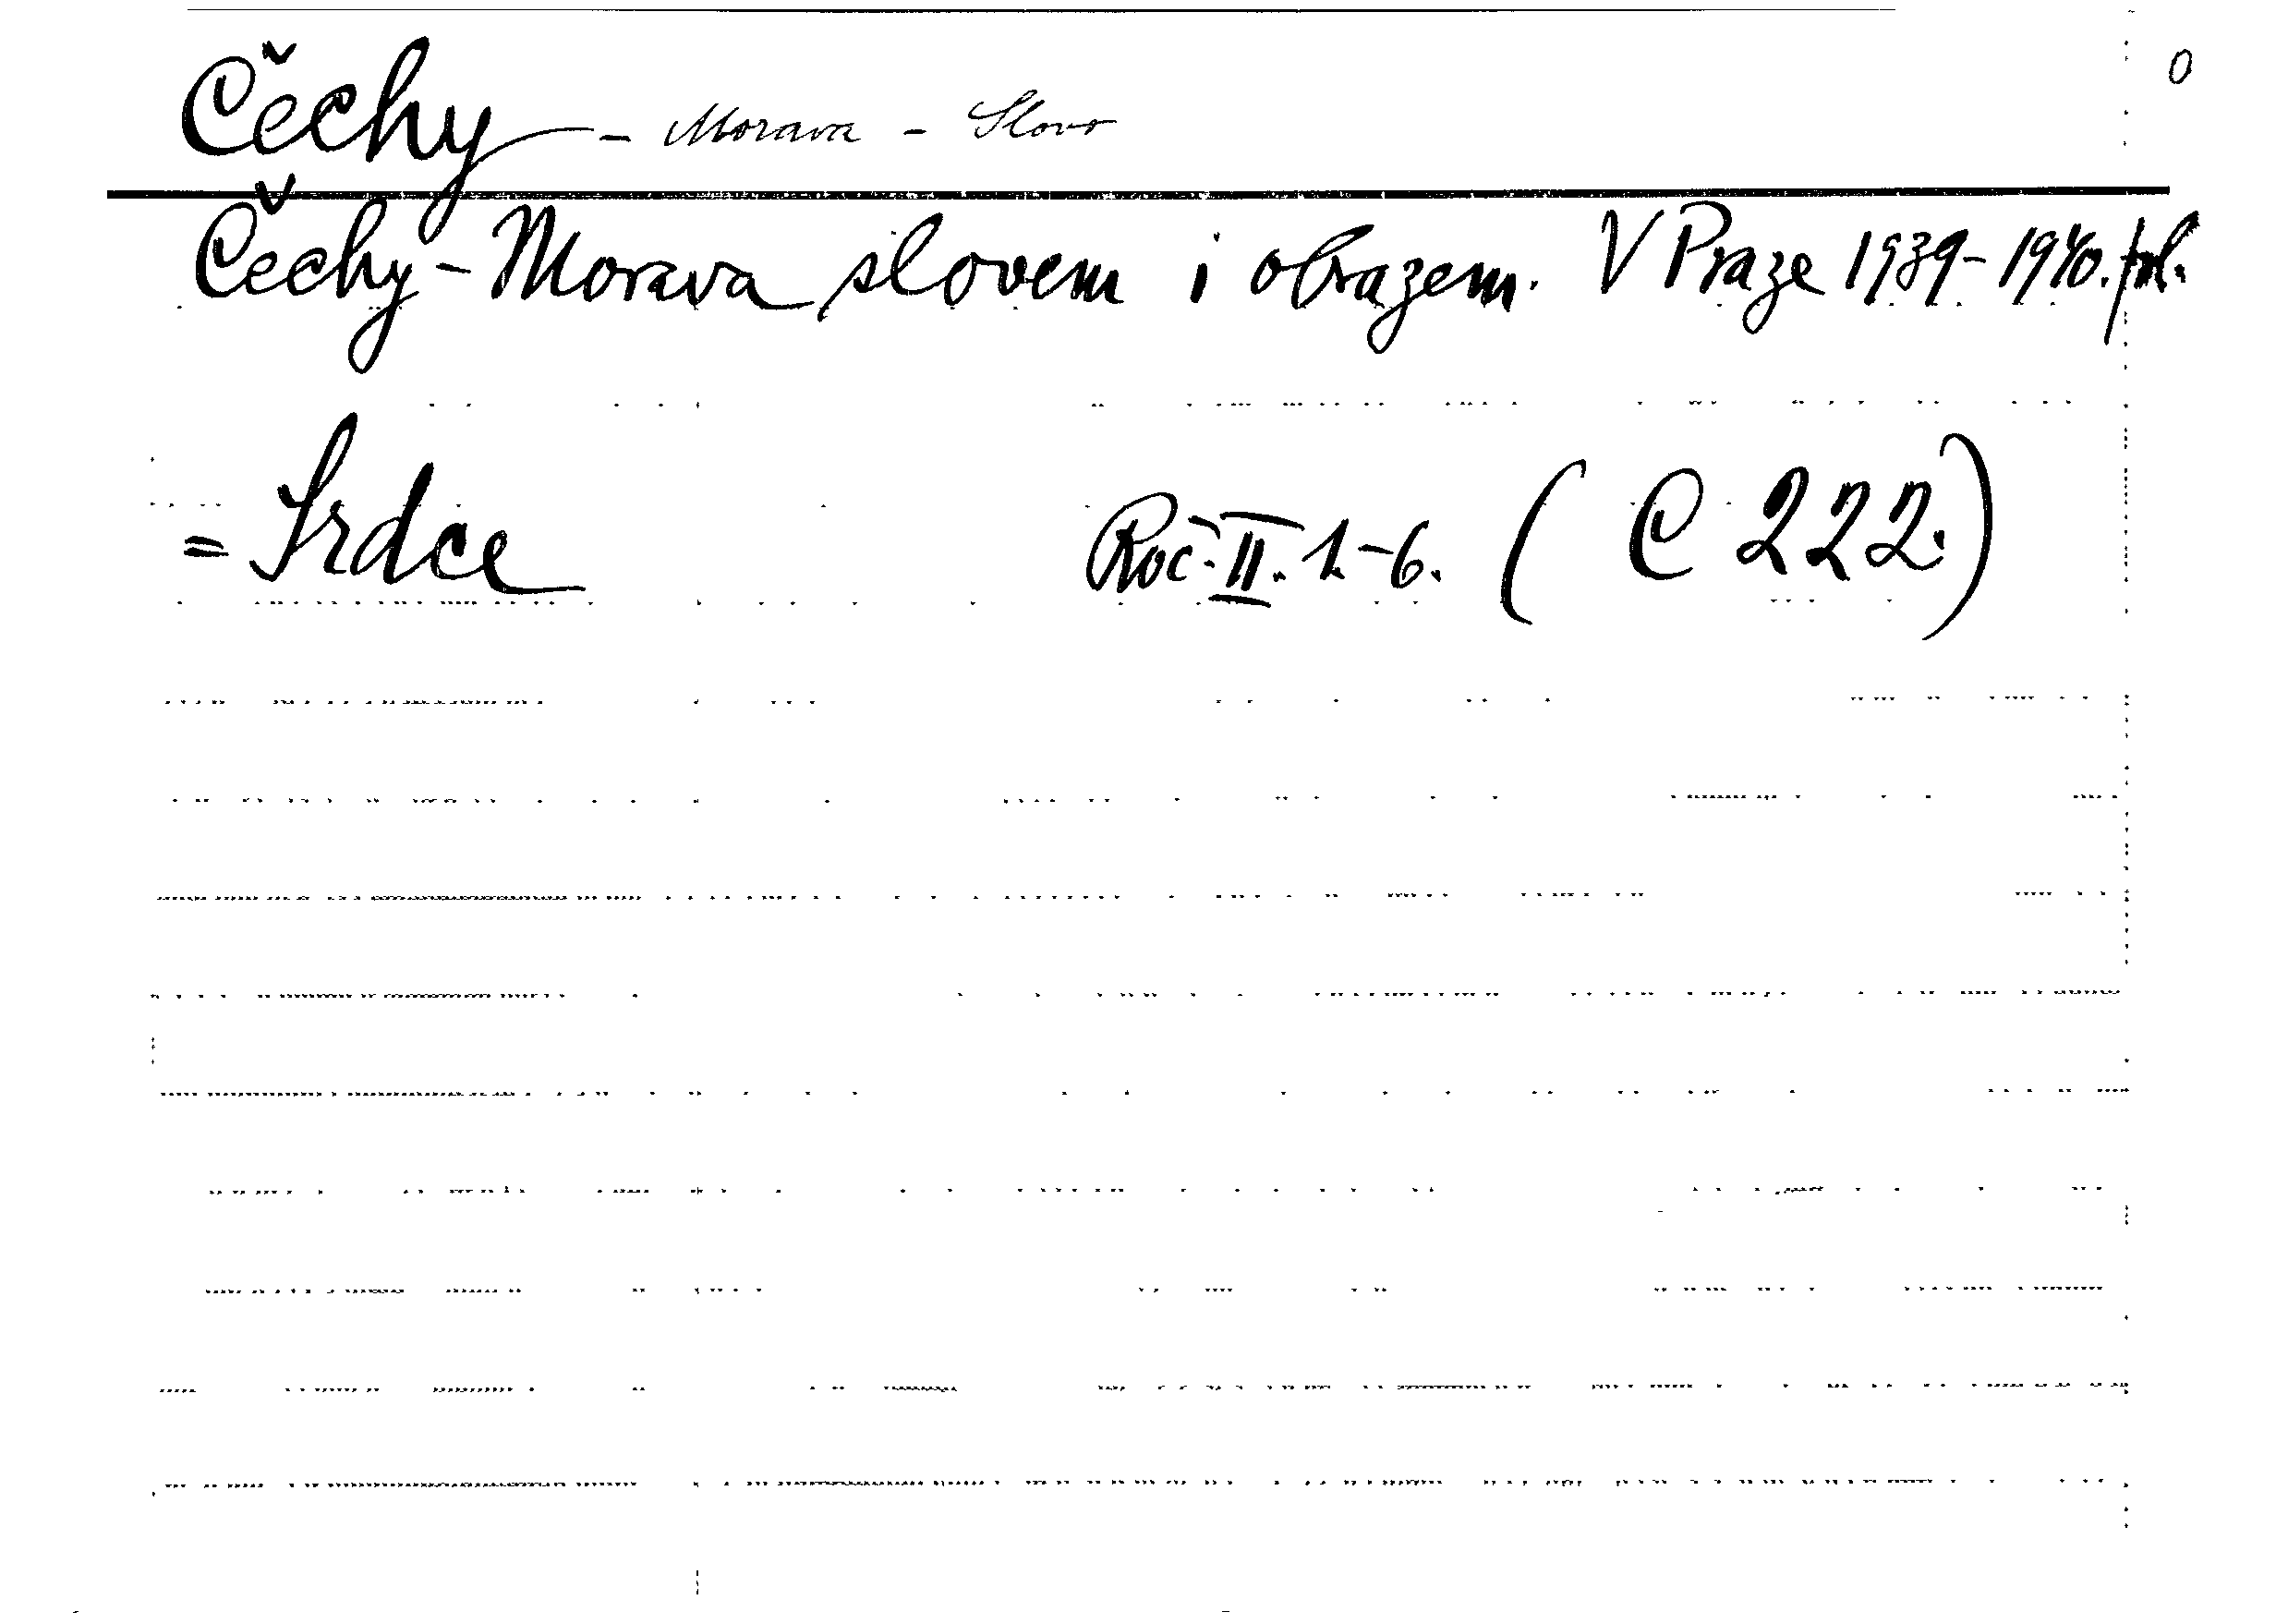 Čechy - Morava - Slovo 0
Čechy - Morava slovem i obrazem. V Praze 1939-1940. fol.
= Srdce Roč. II. 1.-6. ( C 222.)